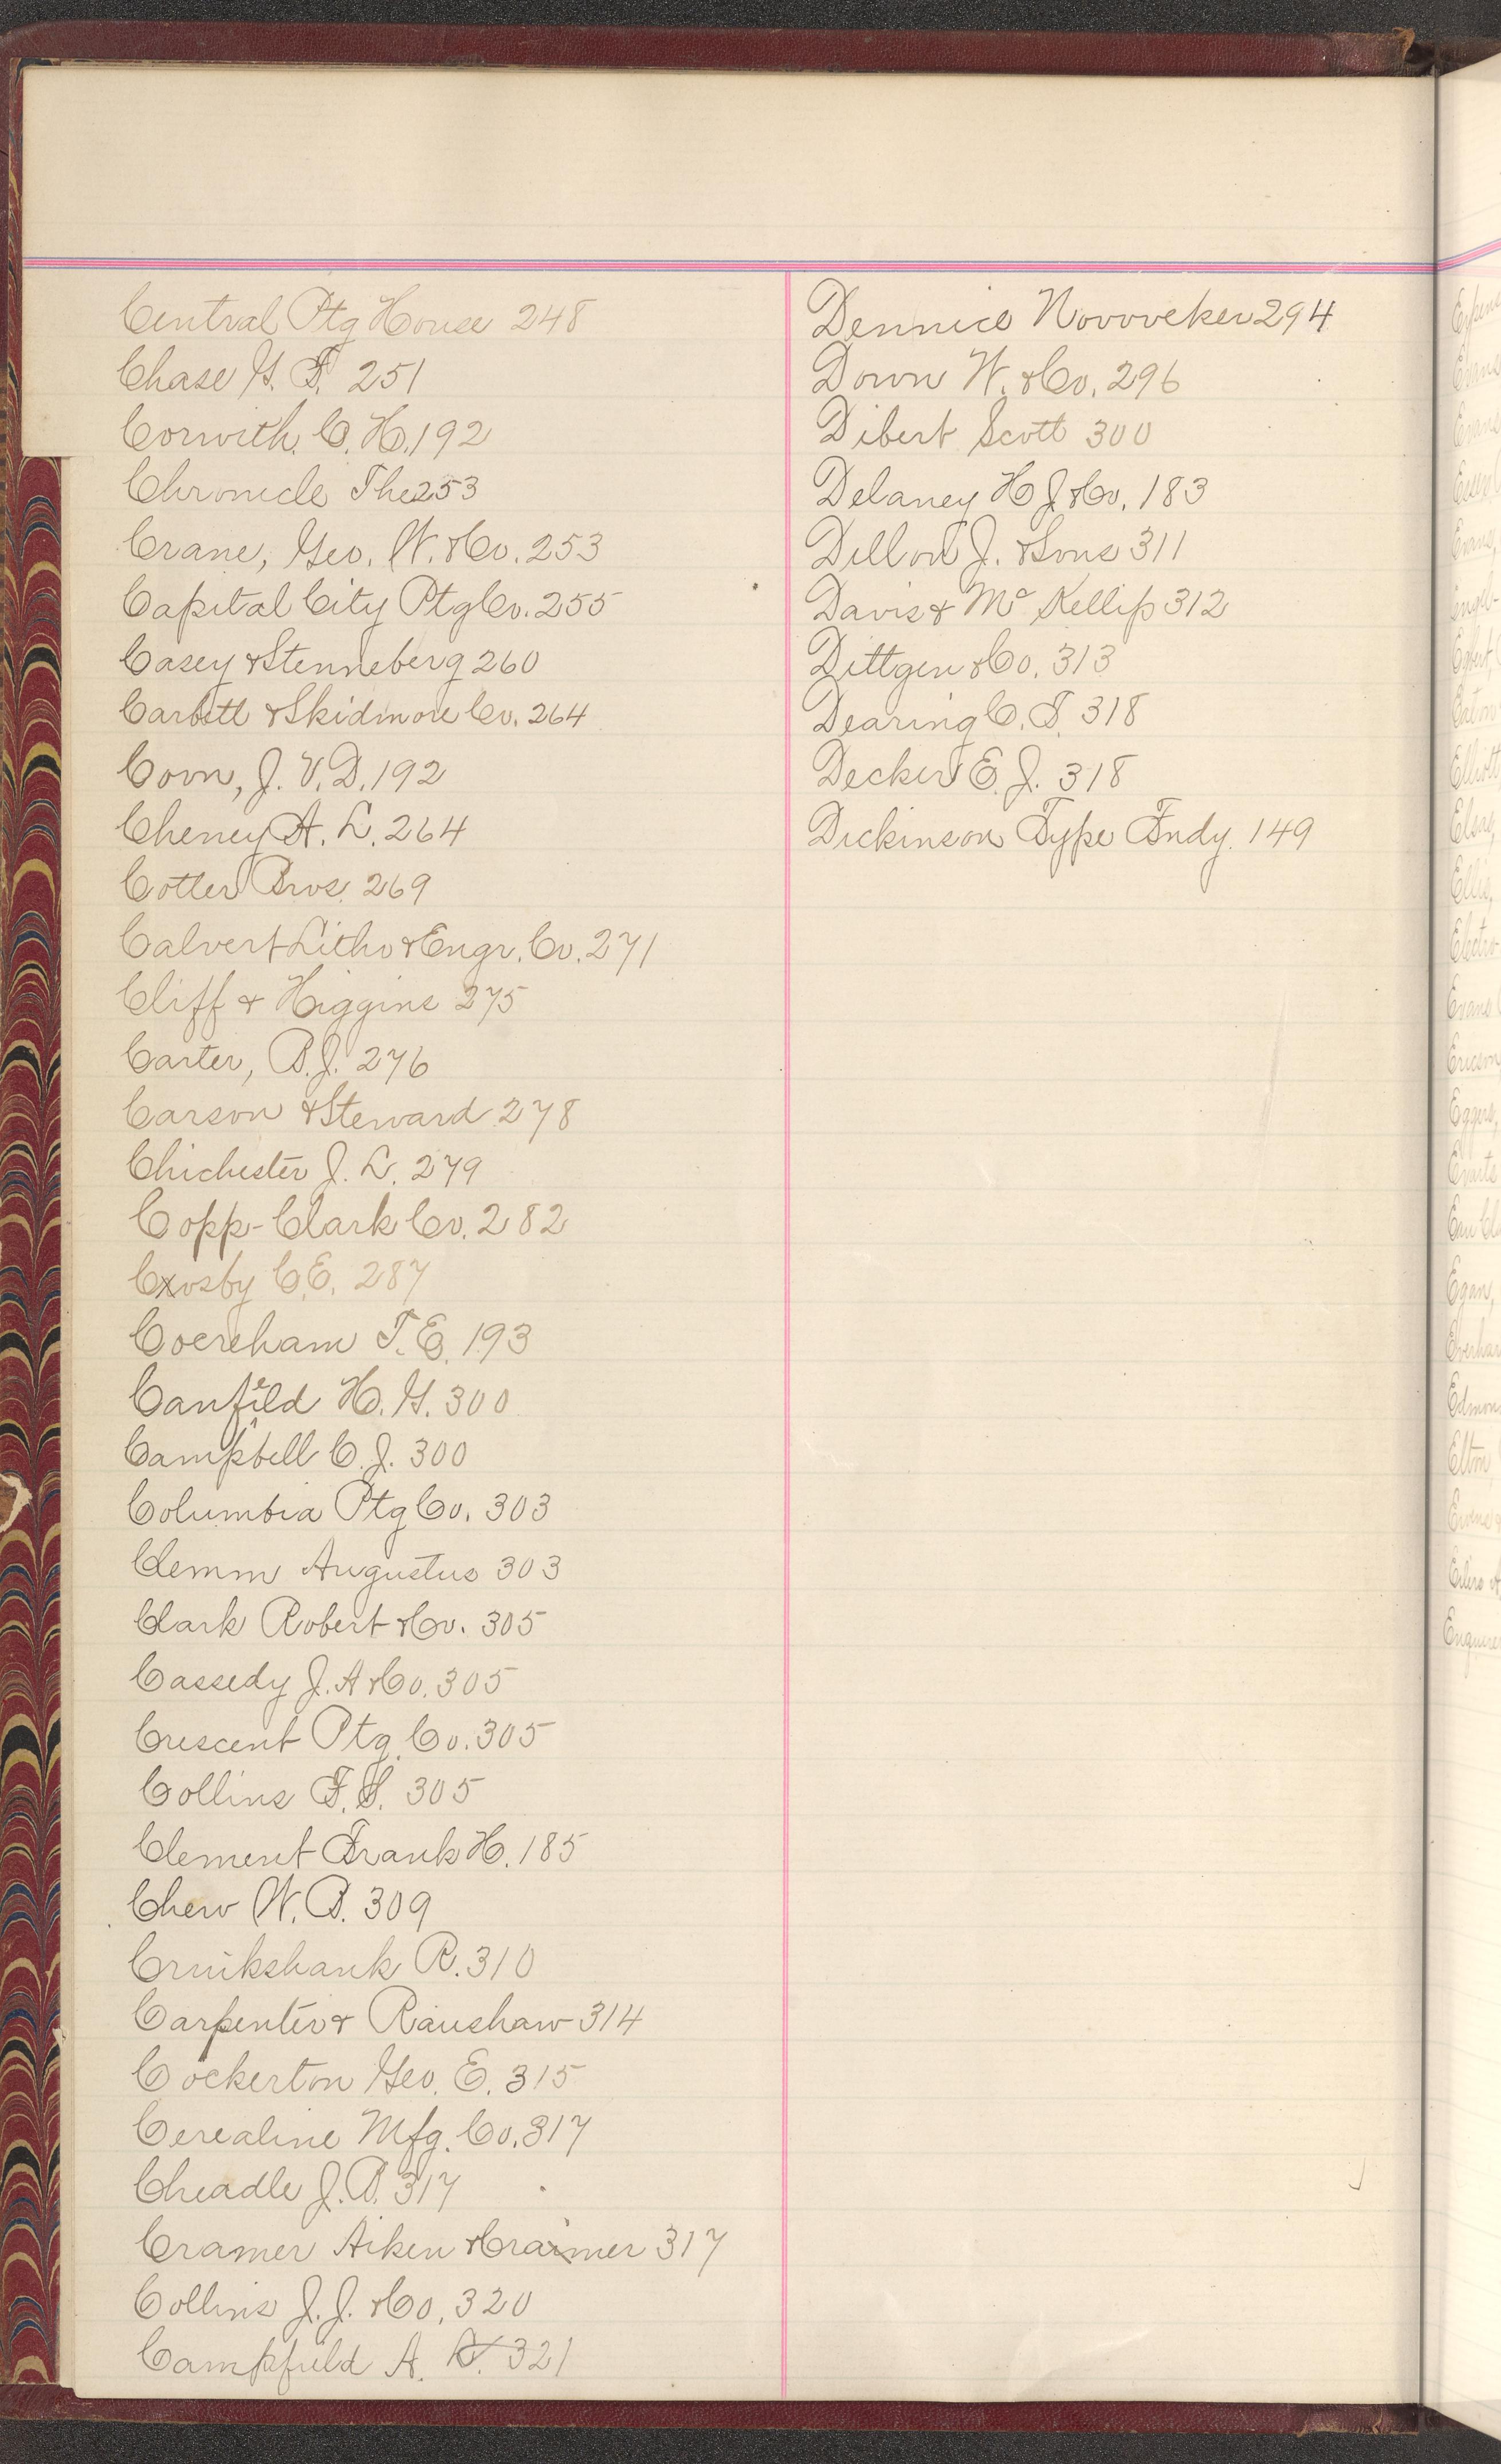 Central Ptg House 248
Chase G. F. 251
Corwith C. H. 192
Chronicle The 253
Crane, Geo. W. & Co. 253
Capital City Ptg Co. 255
Casey & Stenneberg 260
Carbett & Skidmore Co. 264
Corn, J. V. D. 192
Cheney A. L. 264
Cotter Bros. 269
Calvert Litho & Engr. Co. 271
Cliff & Higgins 275
Carter, B. J. 276
Carson & Steward 278
Chichester J. L. 279
Copp-Clark Co. 282
Crosby C. E. 287
T. E. 193
Canfield H. G. 300
Campbell C. J. 300
Columbia Ptg Co. 303
Clemm Augustus 303
Clark Robert & Co. 305
Cassedy J. A & Co. 305
Crescent Ptg. Co. 305
Collins F. S. 305
Clement Frank H. 185
Chew W. B. 309
Cruikshank R. 310
Carpenter & Raushaw 314
Cockerton Geo. E. 315
Cerealine Mfg. Co. 317
Cheadle J. B. 317
Cramer Aiken & Cramer 317
Collins J. J. & Co. 320
Campfield A. 321
Dennice 294
Down W. & Co. 296
Dibert Scott 300
Delaney H J & Co. 183
Dillon J. & Sons 311
Davis & Mc Kellip 312
Dittgen & Co. 313
Dearing C. S. 318
Decker E. J. 318
Dickinson Type Fndy. 149
Evans